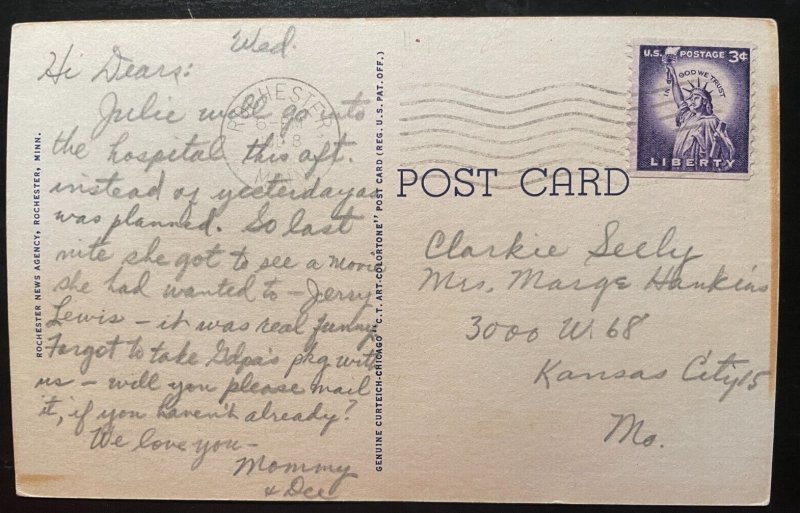 Wed.
Hi Dears:
Julie will go into
the hospital this aft.
instead of yesterday as
was planned. So last
nite she got to see a movie
she had wanted to – Jerry
Lewis – it was real funny
Forgot to take Gdpa's pkg with
us – will you please mail
it, if you haven't already?
We love you –
Mommy
+ Dee
ROCHESTER NEWS AGENCY, ROCHESTER, MINN.
GENUINE CURTEICH-CHICAGO "C.T. ART-COLORTONE" POST CARD (REG. U.S. PAT. OFF.)
ROCHESTER
8
U.S. POSTAGE 3¢
IN GOD WE TRUST
LIBERTY
POST CARD
Clarkie Seely
Mrs. Marge Hankins
3000 W. 68
Kansas City 15
Mo.